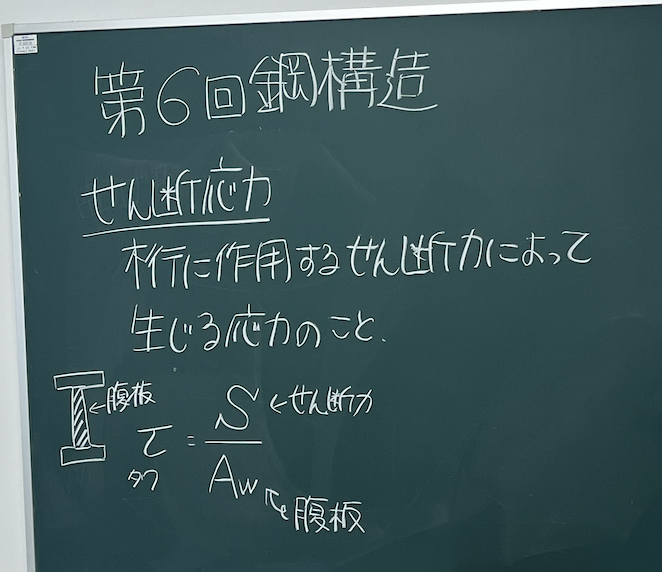 第6回鋼構造
せん断応力
桁に作用するせん断力によって
生じる応力のこと.
←腹板
τ = S/Aw
←せん断力
タウ
↖腹板